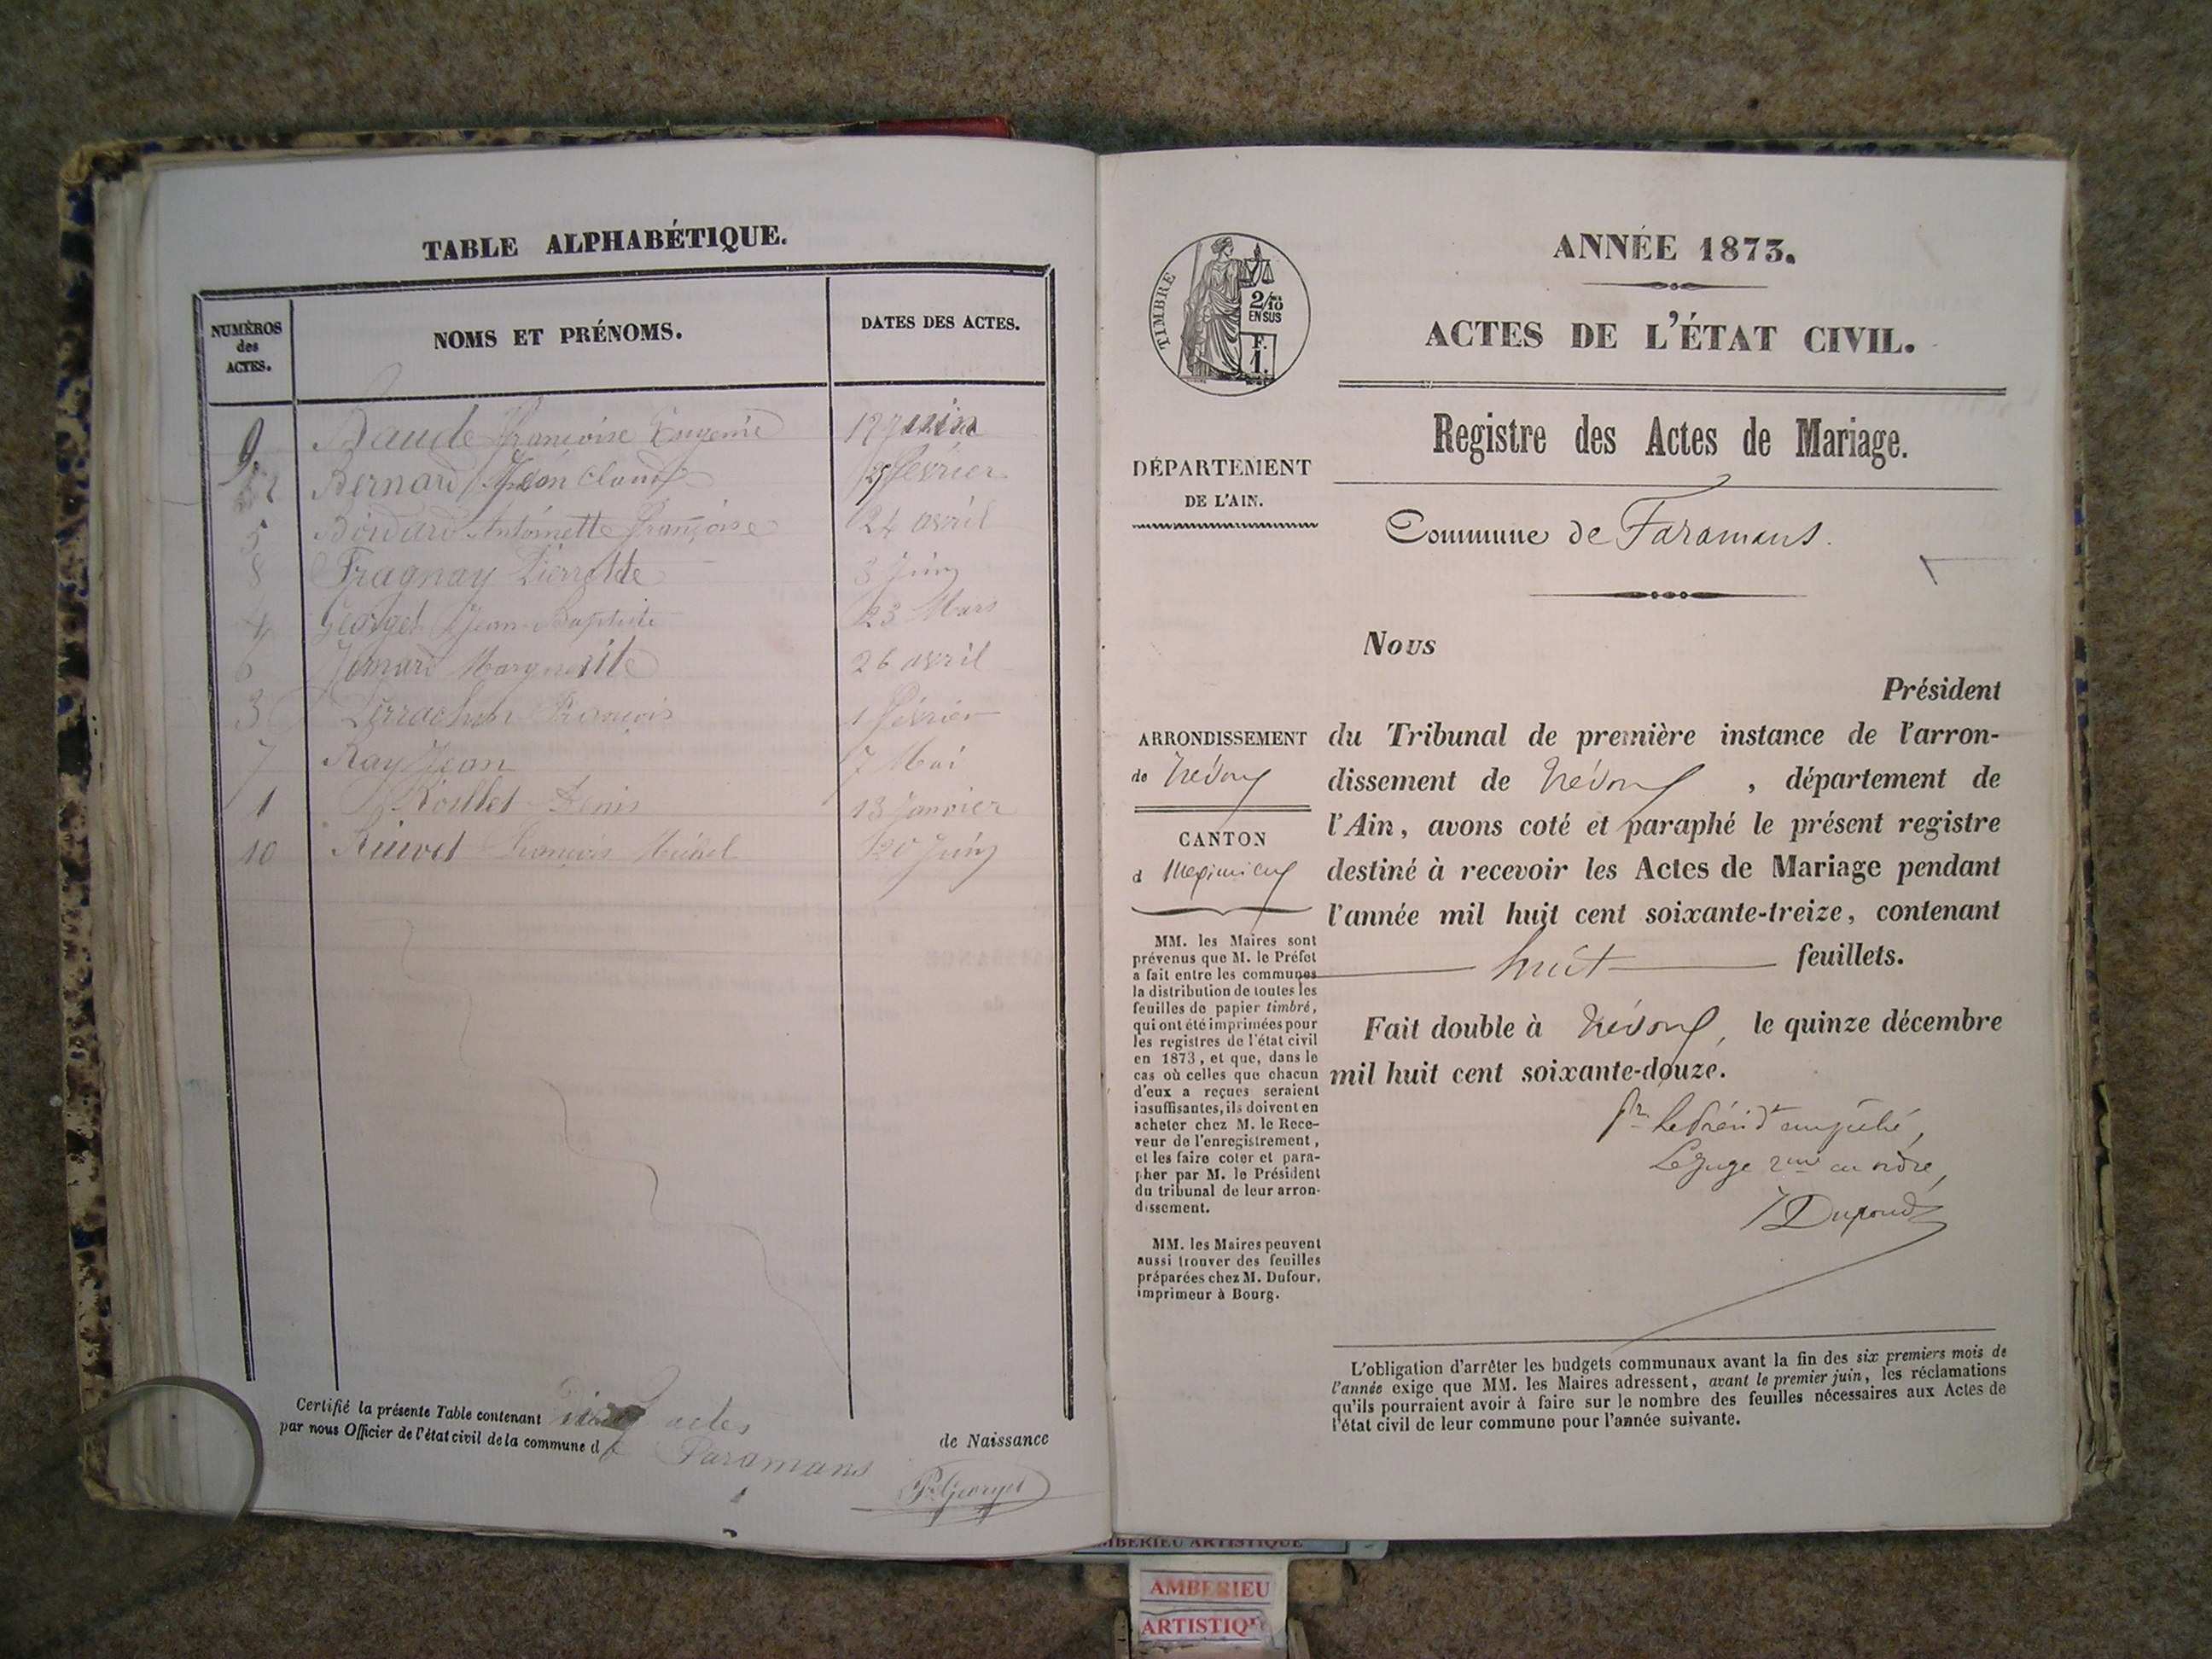 TABLE ALPHABÉTIQUE.
NUMÉROS
des
ACTES.
NOMS ET PRÉNOMS.
DATES DES ACTES.
9 Baude Françoise Eugenie 17 Juin
2 Bernard Jean Claude février
5 Antoinette Françoise 24 avril
8 Fragnay Pierrette 3 Juin
4 Georget Jean-Baptiste 23 Mars
6 Marguerite 26 avril
3 Perrachon François 1 février
7 Ray Jean 7 Mai
1 Roullet Denis 13 Janvier
10 François Michel 20 Juin
Certifié la présente Table contenant Dix actes
de Naissance
par nous Officier de l'état civil de la commune de Faramans
P. Georget
TIMBRE
2/10
EN SUS
F.
1.
ANNÉE 1873.
ACTES DE L'ÉTAT CIVIL.
Registre des Actes de Mariage.
DÉPARTEMENT
DE L'AIN.
Commune de Faramans.
Nous
Président
ARRONDISSEMENT
de Trévoux
CANTON
d Meximieux
du Tribunal de première instance de l'arron-
dissement de Trévoux, département de
l'Ain, avons coté et paraphé le présent registre
destiné à recevoir les Actes de Mariage pendant
l'année mil huit cent soixante-treize, contenant
huit feuillets.
Fait double à Trévoux, le quinze décembre
mil huit cent soixante-douze.
Pr. Le Présidt empêché,
Le Juge 2me en ordre,
Dupond
MM. les Maires sont
prévenus que M. le Préfet
a fait entre les communes
la distribution de toutes les
feuilles de papier timbré,
qui ont été imprimées pour
les registres de l'état civil
en 1873, et que, dans le
cas où celles que chacun
d'eux a reçues seraient
insuffisantes, ils doivent en
acheter chez M. le Rece-
veur de l'enregistrement,
et les faire coter et para-
pher par M. le Président
du tribunal de leur arron-
dissement.
MM. les Maires peuvent
aussi trouver des feuilles
préparées chez M. Dufour,
imprimeur à Bourg.
L'obligation d'arrêter les budgets communaux avant la fin des six premiers mois de
l'année exige que MM. les Maires adressent, avant le premier juin, les réclamations
qu'ils pourraient avoir à faire sur le nombre des feuilles nécessaires aux Actes de
l'état civil de leur commune pour l'année suivante.
AMBERIEU ARTISTIQUE
AMBERIEU
ARTISTIQUE